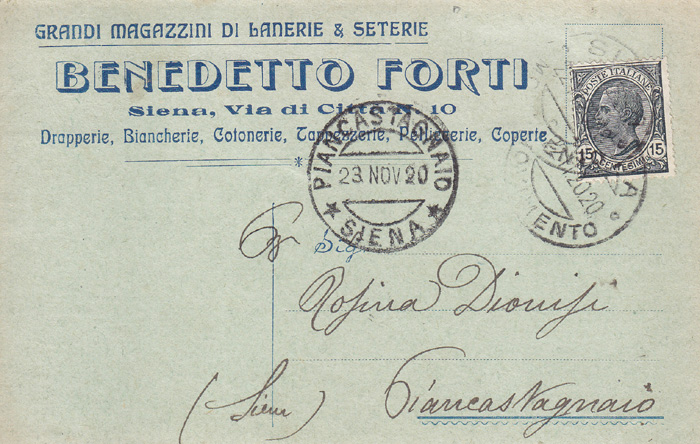 GRANDI MAGAZZINI DI LANERIE & SETERIE
BENEDETTO FORTI
Siena, Via di Città N. 10
Drapperie, Biancherie, Cotonerie, Tappezzerie, Pelliccerie, Coperte
POSTE ITALIANE
15 15
CENTESIMI
PIANCASTAGNAIO
23 NOV 20
SIENA
SIENA
20
ENTO
Sig
Rosina Dionisi
Piancastagnaio
(Siena)